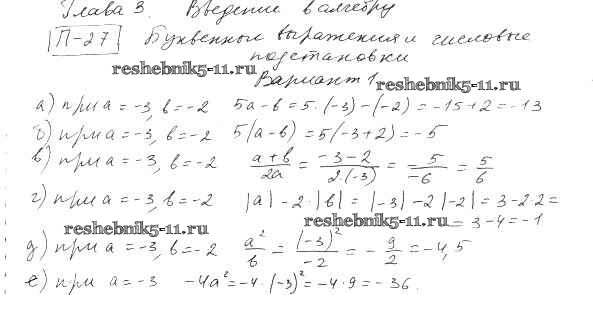 Глава 3. Введение в алгебру
П-27 Буквенные выражения и числовые
подстановки
reshebnik5-11.ru
Вариант 1
reshebnik5-11.ru
а) при a = -3, b = -2 5a - b = 5·(-3) - (-2) = -15 + 2 = -13
б) при a = -3, b = -2 5(a - b) = 5(-3 + 2) = -5
в) при a = -3, b = -2 (a + b)/(2a) = (-3 - 2)/(2·(-3)) = (-5)/(-6) = 5/6
г) при a = -3, b = -2 |a| - 2·|b| = |-3| - 2|-2| = 3 - 2·2 =
= 3 - 4 = -1
reshebnik5-11.ru
reshebnik5-11.ru
д) при a = -3, b = -2 a²/b = (-3)²/(-2) = -9/2 = -4,5
е) при a = -3 -4a² = -4·(-3)² = -4·9 = -36.